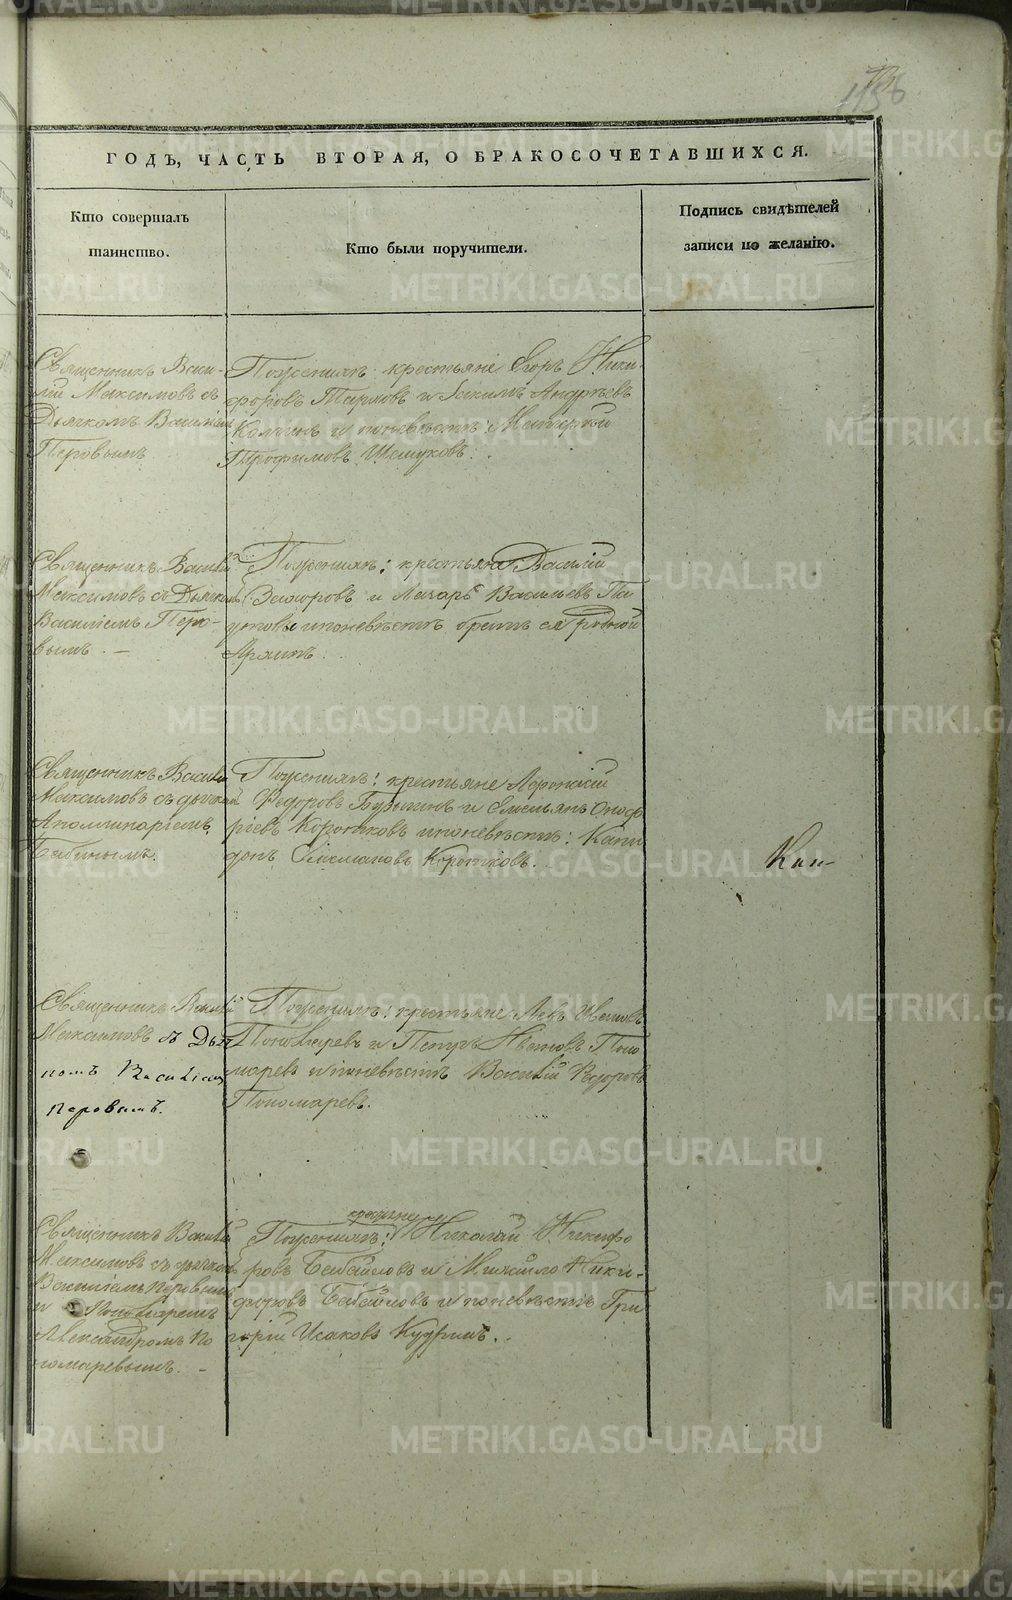 156
ГОДЪ, ЧАСТЬ ВТОРАЯ, О БРАКОСОЧЕТАВШИХСЯ.
Кто совершалъ
таинство.
Кто были поручители.
Подпись свидѣтелей
записи по желанію.
Священникъ Васи-
лій Максимовъ съ
Дьячкомъ Василіем
Перовымъ
По женихѣ крестьяне Егоръ Ники-
форовъ и Андрѣевъ
и по невѣстѣ
Трофимовъ
Священникъ Василій
Максимовъ съ Дьячком
Василіемъ Перо-
вымъ. —
По женихѣ: крестьяне Василій
и Васильевъ
и по невѣстѣ братъ ея родной
Священникъ Василій
Максимовъ съ дьячком
Аполлинаріемъ
Бабинымъ.
По женихѣ: крестьяне
Федоровъ и Емельянъ Оноф
ріевъ Коротковъ и по невѣстѣ:
Коротковъ.
Кан-
Священникъ Василій
Максимовъ съ Дьяч
комъ Василіем
Перовымъ.
По женихѣ: крестьяне Левъ Ивановъ
Пономаревъ и Петръ Ивановъ Поно
маревъ и по невѣстѣ Василій Федоровъ
Пономаревъ.
Священникъ Василій
Максимовъ съ дьячком
Василіемъ Перовымъ
и Пономаремъ
Александромъ По
номаревымъ. —
крестьяне
По женихѣ: Николай Никифо
ровъ Бабайловъ и Михайло Ники-
форовъ Бабайловъ и по невѣстѣ Гри
горій Исаковъ Кудринъ.
METRIKI.GASO-URAL.RU